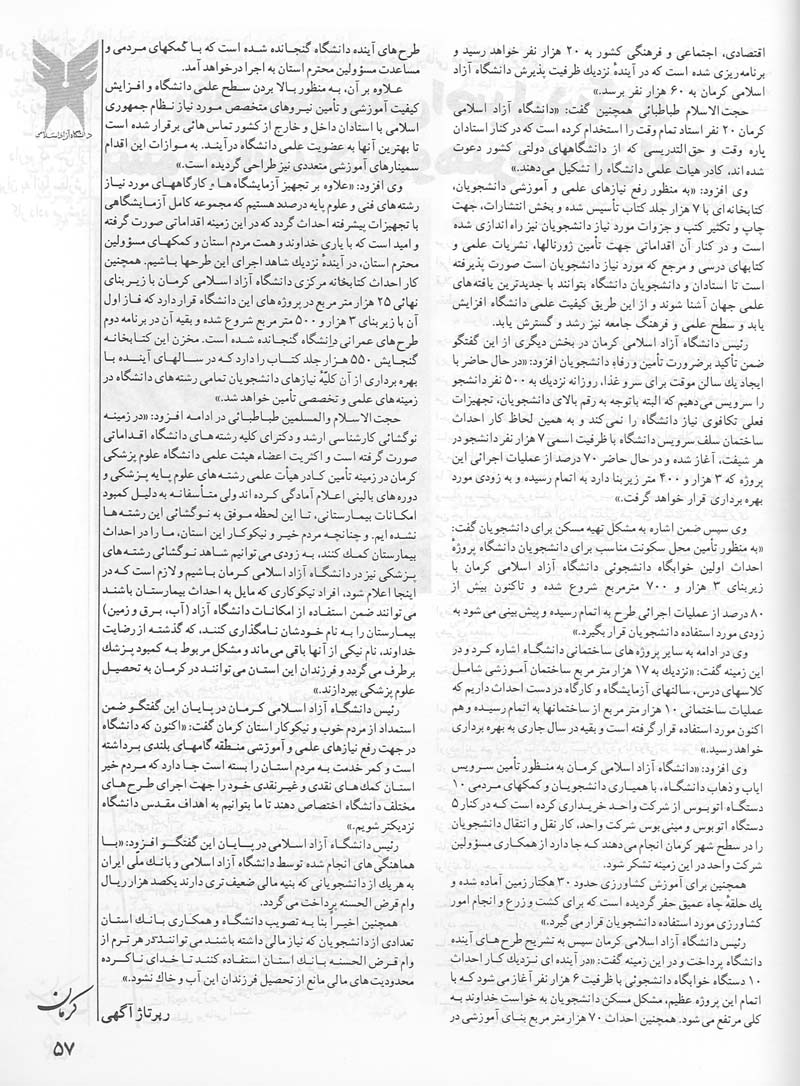 اقتصادی، اجتماعی و فرهنگی کشور به ۲۰ هزار نفر خواهد رسید و
برنامه‌ریزی شده است که در آیندهٔ نزدیك ظرفیت پذیرش دانشگاه آزاد
اسلامی کرمان به ۶۰ هزار نفر برسد.»
حجت‌الاسلام طباطبائی همچنین گفت: «دانشگاه آزاد اسلامی
کرمان ۲۰ نفر استاد تمام وقت را استخدام کرده است که در کنار استادان
پاره وقت و حق‌التدریسی که از دانشگاههای دولتی کشور دعوت
شده‌اند، کادر هیأت علمی دانشگاه را تشکیل می‌دهند.»
وی افزود: «به منظور رفع نیازهای علمی و آموزشی دانشجویان،
کتابخانه‌ای با ۷ هزار جلد کتاب تأسیس شده و بخش انتشارات، جهت
چاپ و تکثیر کتب و جزوات مورد نیاز دانشجویان نیز راه اندازی شده
است و در کنار آن اقداماتی جهت تأمین ژورنالها، نشریات علمی و
کتابهای درسی و مرجع که مورد نیاز دانشجویان است صورت پذیرفته
است تا استادان و دانشجویان دانشگاه بتوانند با جدیدترین یافته‌های
علمی جهان آشنا شوند و از این طریق کیفیت علمی دانشگاه افزایش
یابد و سطح علمی و فرهنگ جامعه نیز رشد و گسترش یابد.
رئیس دانشگاه آزاد اسلامی کرمان در بخش دیگری از این گفتگو
ضمن تأکید بر ضرورت تأمین و رفاه دانشجویان افزود: «در حال حاضر با
ایجاد یك سالن موقت برای سرو غذا، روزانه نزدیك به ۵۰۰ نفر دانشجو
را سرویس می‌دهیم که البته باتوجه به رقم بالای دانشجویان، تجهیزات
فعلی تکافوی نیاز دانشگاه را نمی‌کند و به همین لحاظ کار احداث
ساختمان سلف سرویس دانشگاه با ظرفیت اسمی ۷ هزار نفر دانشجو در
هر شیفت، آغاز شده و در حال حاضر ۷۰ درصد از عملیات اجرائی این
پروژه که ۳ هزار و ۴۰۰ متر زیربنا دارد به اتمام رسیده و به زودی مورد
بهره برداری قرار خواهد گرفت.»
وی سپس ضمن اشاره به مشکل تهیه مسکن برای دانشجویان گفت:
«به منظور تأمین محل سکونت مناسب برای دانشجویان دانشگاه پروژهٔ
احداث اولین خوابگاه دانشجوئی دانشگاه آزاد اسلامی کرمان با
زیربنای ۳ هزار و ۷۰۰ مترمربع شروع شده و تاکنون بیش از
۸۰ درصد از عملیات اجرائی طرح به اتمام رسیده و پیش بینی می‌شود به
زودی مورد استفاده دانشجویان قرار بگیرد.»
وی در ادامه به سایر پروژه های ساختمانی دانشگاه اشاره کرد و در
این زمینه گفت: «نزدیك به ۱۷ هزار متر مربع ساختمان آموزشی شامل
کلاسهای درس، سالنهای آزمایشگاه و کارگاه در دست احداث داریم که
عملیات ساختمانی ۱۰ هزار متر مربع از ساختمانها به اتمام رسیده و هم
اکنون مورد استفاده قرار گرفته است و بقیه در سال جاری به بهره برداری
خواهد رسید.»
وی افزود: «دانشگاه آزاد اسلامی کرمان به منظور تأمین سرویس
ایاب و ذهاب دانشگاه، با همیاری دانشجویان و کمکهای مردمی ۱۰
دستگاه اتوبوس از شرکت واحد خریداری کرده است که در کنار ۵
دستگاه اتوبوس و مینی بوس شرکت واحد، کار نقل و انتقال دانشجویان
را در سطح شهر کرمان انجام می‌دهند که جا دارد از همکاری مسؤولین
شرکت واحد در این زمینه تشکر شود.
همچنین برای آموزش کشاورزی حدود ۳۰ هکتار زمین آماده شده و
یك حلقه چاه عمیق حفر گردیده است که برای کشت و زرع و انجام امور
کشاورزی مورد استفاده دانشجویان قرار می گیرد.»
رئیس دانشگاه آزاد اسلامی کرمان سپس به تشریح طرح‌های آینده
دانشگاه پرداخت و در این زمینه گفت: «در آینده ای نزدیك کار احداث
۱۰ دستگاه خوابگاه دانشجوئی با ظرفیت ۶ هزار نفر آغاز می‌شود که با
اتمام این پروژه عظیم، مشکل مسکن دانشجویان به خواست خداوند به
کلی مرتفع می شود. همچنین احداث ۷۰ هزار متر مربع بنای آموزشی در
طرح‌های آینده دانشگاه گنجانده شده است که با کمکهای مردمی و
مساعدت مسؤولین محترم استان به اجرا درخواهد آمد.
علاوه بر آن، به منظور بالا بردن سطح علمی دانشگاه و افزایش
کیفیت آموزشی و تأمین نیروهای متخصص مورد نیاز نظام جمهوری
اسلامی با استادان داخل و خارج از کشور تماس هائی برقرار شده است
تا بهترین آنها به عضویت علمی دانشگاه درآیند. به موازات این اقدام
سمینارهای آموزشی متعددی نیز طراحی گردیده است.»
وی افزود: «علاوه بر تجهیز آزمایشگاه ها و کارگاههای مورد نیاز
رشته‌های فنی و علوم پایه درصدد هستیم که مجموعه کامل آزمایشگاهی
با تجهیزات پیشرفته احداث گردد که در این زمینه اقداماتی صورت گرفته
و امید است که با یاری خداوند و همت مردم استان و کمکهای مسؤولین
محترم استان، در آیندهٔ نزدیك شاهد اجرای این طرحها باشیم. همچنین
کار احداث کتابخانه مرکزی دانشگاه آزاد اسلامی کرمان با زیربنای
نهائی ۲۵ هزار متر مربع در پروژه های این دانشگاه قرار دارد که فاز اول
آن با زیربنای ۳ هزار و ۵۰۰ متر مربع شروع شده و بقیه آن در برنامه دوم
طرح‌های عمرانی دانشگاه گنجانده شده است. مخزن این کتابخانه
گنجایش ۵۵۰ هزار جلد کتاب را دارد که در سالهای آینده با
بهره برداری از آن کلیهٔ نیازهای دانشجویان تمامی رشته‌های دانشگاه در
زمینه های علمی و تخصصی تأمین خواهد شد.»
حجت الاسلام والمسلمین طباطبائی در ادامه افزود: «در زمینه
نوگشائی کارشناسی ارشد و دکترای کلیه رشته های دانشگاه اقداماتی
صورت گرفته است و اکثریت اعضاء هیئت علمی دانشگاه علوم پزشکی
کرمان در زمینه تأمین کادر هیأت علمی رشته‌های علوم پایه پزشکی و
دوره های بالینی اعلام آمادگی کرده اند ولی متأسفانه به دلیل کمبود
امکانات بیمارستانی، تا این لحظه موفق به نوگشائی این رشته ها
نشده ایم. و چنانچه مردم خیر و نیکوکار این استان، ما را در احداث
بیمارستان کمك کنند، به زودی می توانیم شاهد نوگشائی رشته‌های
پزشکی نیز در دانشگاه آزاد اسلامی کرمان باشیم و لازم است که در
اینجا اعلام شود، افراد نیکوکاری که مایل به احداث بیمارستان باشند
می توانند ضمن استفاده از امکانات دانشگاه آزاد (آب، برق و زمین)
بیمارستان را به نام خودشان نامگذاری کنند، که گذشته از رضایت
خداوند، نام نیکی از آنها باقی می‌ماند و مشکل مربوط به کمبود پزشك
برطرف می گردد و فرزندان این استان می توانند در کرمان به تحصیل
علوم پزشکی بپردازند.»
رئیس دانشگاه آزاد اسلامی کرمان در پایان این گفتگو ضمن
استمداد از مردم خوب و نیکوکار استان کرمان گفت: «اکنون که دانشگاه
در جهت رفع نیازهای علمی و آموزشی منطقه گامهای بلندی برداشته
است و کمر خدمت به مردم استان را بسته است جا دارد که مردم خیر
استان کمك های نقدی و غیر نقدی خود را جهت اجرای طرح‌های
مختلف دانشگاه اختصاص دهند تا ما بتوانیم به اهداف مقدس دانشگاه
نزدیکتر شویم.»
رئیس دانشگاه آزاد اسلامی در پایان این گفتگو افزود: «با
هماهنگی های انجام شده توسط دانشگاه آزاد اسلامی و بانك ملّی ایران
به هریك از دانشجویانی که بنیه مالی ضعیف تری دارند یکصد هزار ریال
وام قرض الحسنه پرداخت می گردد.
همچنین اخیراً بنا به تصویب دانشگاه و همکاری بانك استان
تعدادی از دانشجویان که نیاز مالی داشته باشند می توانند در هر ترم از
وام قرض الحسنه بانك استان استفاده کنند تا خدای ناکرده
محدودیت های مالی مانع از تحصیل فرزندان این آب و خاك نشود.»
رپرتاژ آگهی
دانشگاه آزاد اسلامی
کرمان
۵۷